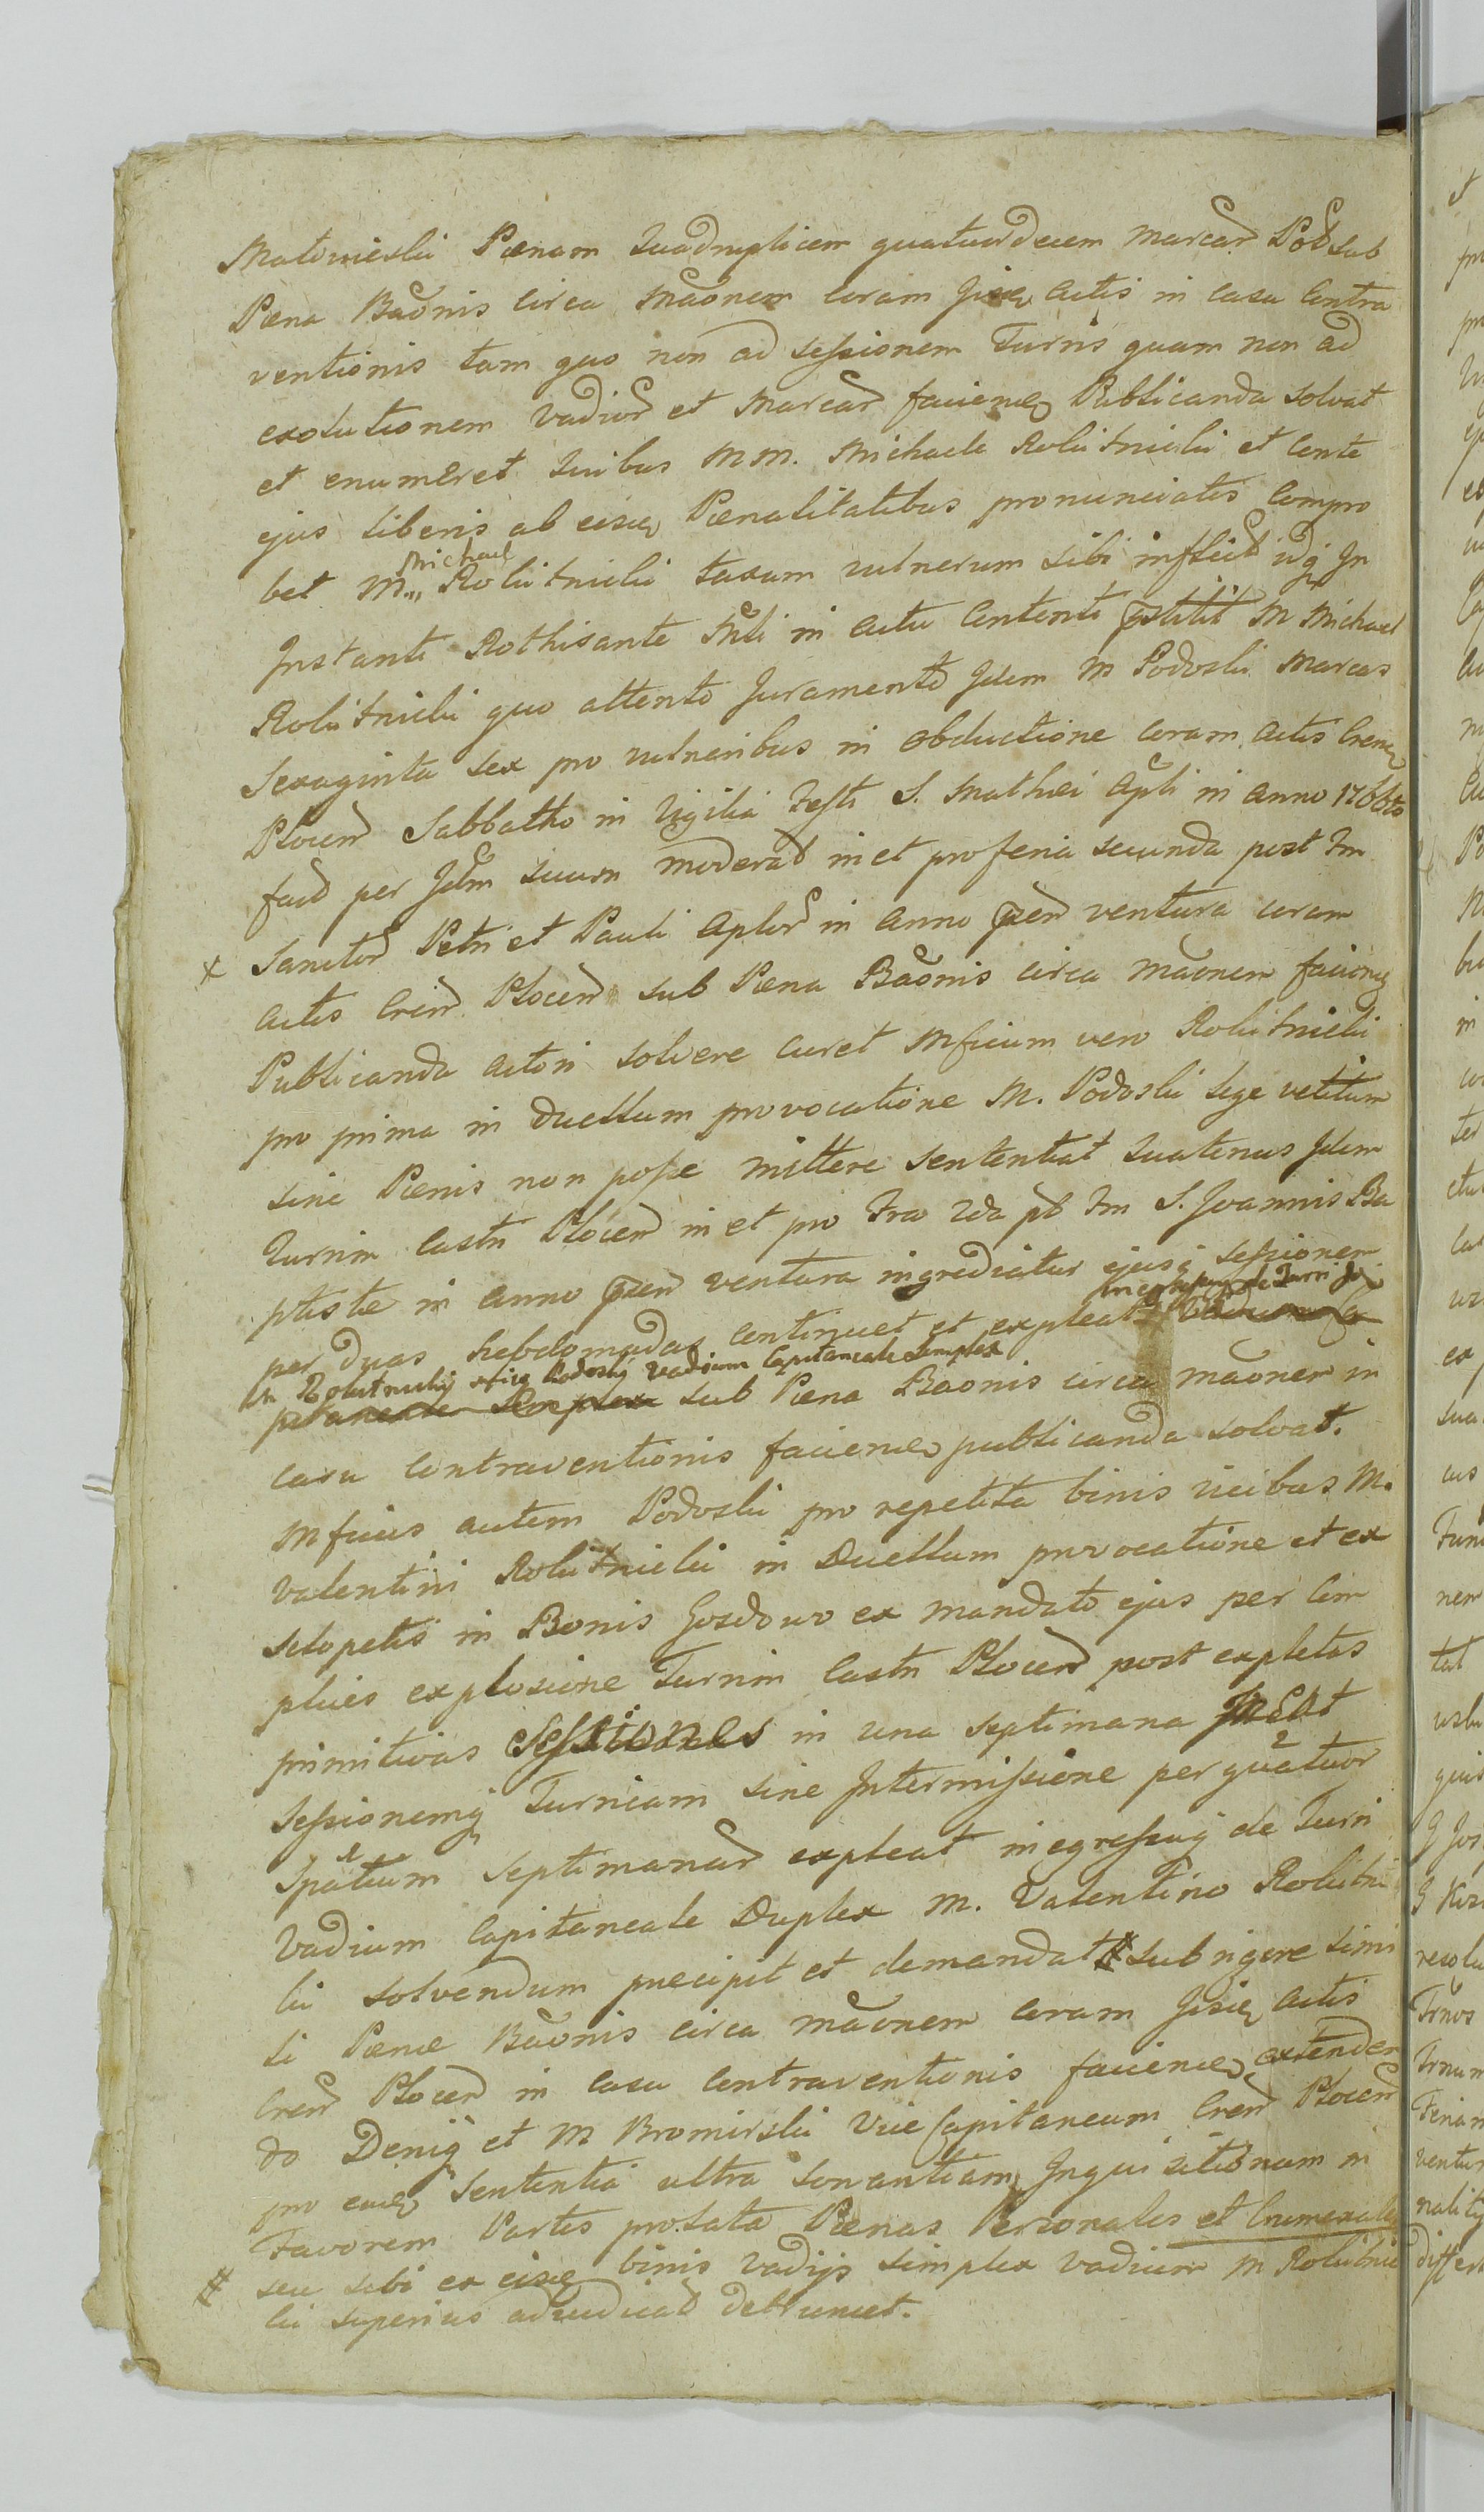 Matowieski Pænam Quadruplicem quatuordecem Marcar Pol sub
Pæna Baonis circa Maonem coram Iisdem Actis in casu Contra
ventionis tam quo non ad sessionem Turris quam non ad
exolutionem Vadior et Marcar faciene Publicanda solvat
et enumeret Quibus MM. Michaele Rokitnicki et Conte
ejus liberis ab eisdem Pænalitatibus pronunciatis Compro
bet M. Michael Rokitnicki taxam vulnerum sibi inflict idq In
Instanti Rothisante Mli in Actu Contenti pstitit M Michael
Rokitnicki quo attento Juramento Idem M Podoski Marcas
sexaginta sex pro vulneribus in obductione coram Actis Crens
Plocen Sabbatho in Vigilia Festi S. Mathæi Apli in Anno 1766to
fact per Idm suum moderat in et pro feria secunda post Fm
x Sanctor Petri et Pauli Aplor in Anno pren ventura coram
Actis Cren Plocen sub Pæna Baonis circa Maonem faciene
Publicanda Actori solvere curet Mficum vero Rokitnicki
pro prima in Duellum provocatione M. Podoski lege vetitum
sine Pænis non posse mittere sententiat Quatenus Idem
Turrim Castri Plocen in et pro Fra 2da pt Fm S. Joannis Ba
ptistæ in Anno pren ventura ingrediatur ejusq sessionem
per duas hebdomadas continuet et expleat in egressuq de Turri Idem Vadium Ca
M Rokitnickij Mfico Podoskij Vadium Capitaneale simplex
pitaneale simplex sub Pæna Baonis circa Maonem in
casu Contraventionis faciene publicanda solvat.
Mficus autem Podoski pro repetita binis vicibus M.
Valentini Rokitnicki in Duellum provocatione et ex
sclopetis in Bonis Gozdowo ex mandato ejus per Com
plices explosione Turrim Castri Plocen post expletas
primitivas Sessiones in una septimana Ineat
Sessionemq Turriam sine Intermissione per quatuor
Spatium septimanar expleat in egressuq de Turri
Vadium Capitaneale Duplex M. Valentino Rokitni
cki solvendum præcipit et demandat # sub rigore simi
li Pænæ Baonis circa Maonem coram Iisdem Actis
Cren Plocen in casu Contraventionis faciene, extenden
do Deniq et M Bromirski Vice Capitaneum Cren Plocen
pro eadem Sententia ultra sonantiam Inquisitionum in
Favorem Partis prolata Pænas Personales et
# seu sibi ex eisdem binis Vadijs simplex Vadium M Rokitnic
ki superius adiudicat detruncet.